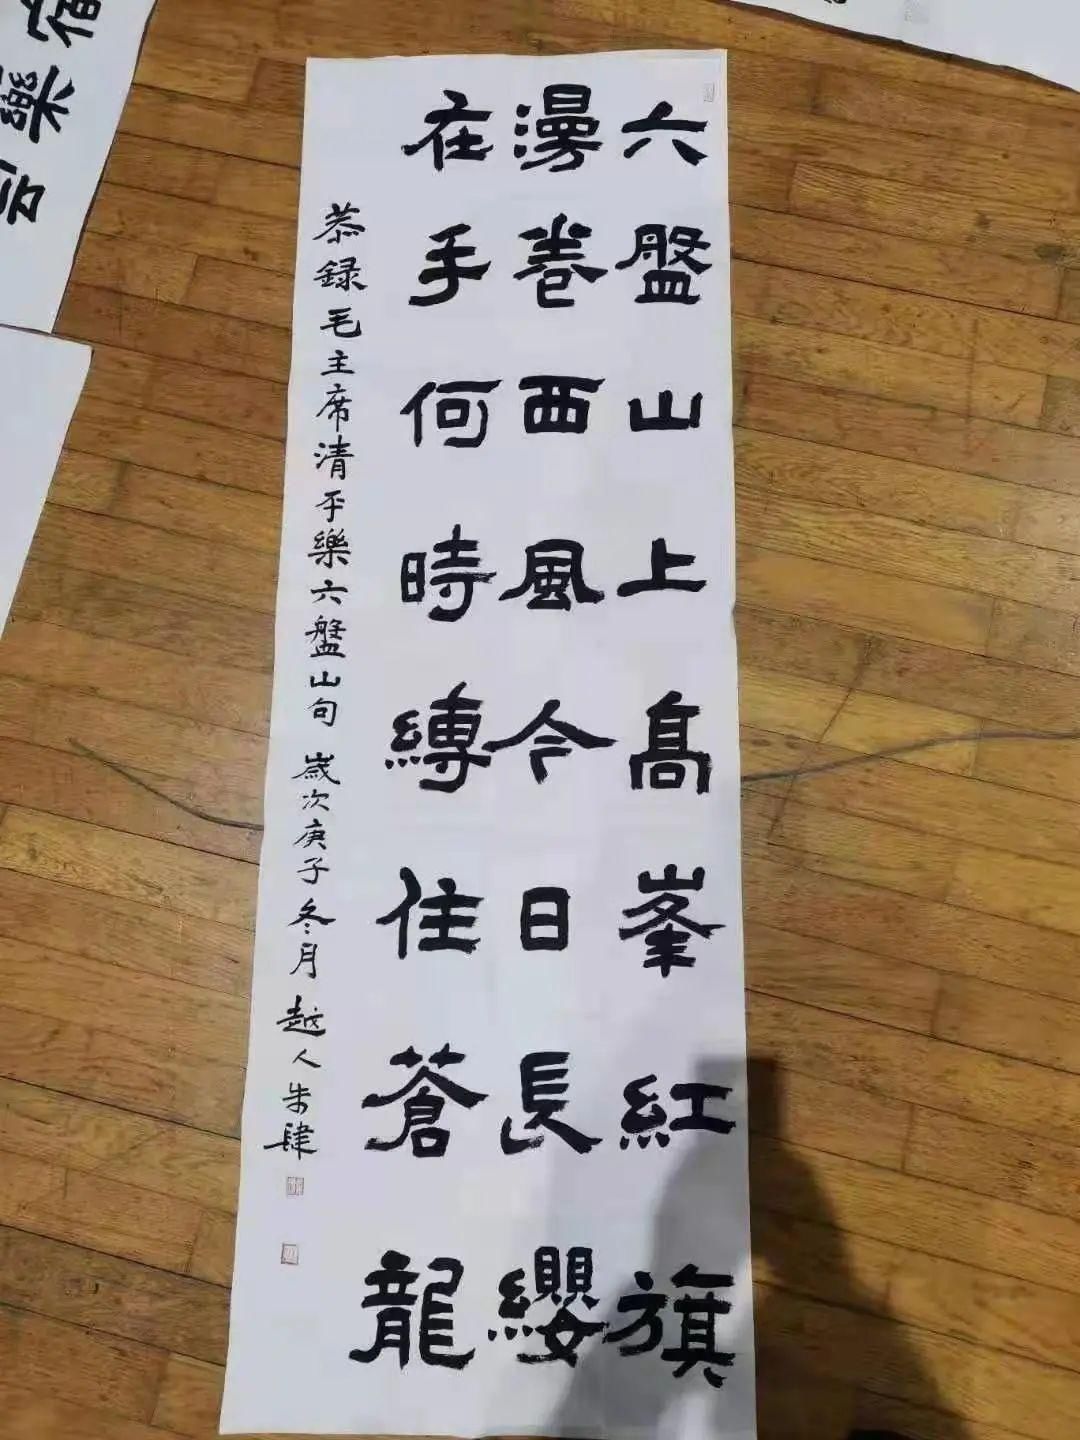 六盤山上髙峯紅旗
漫卷西風今日長纓
在手何時縛住蒼龍
恭録毛主席清平樂六盤山句 歲次庚子冬月 越人朱肆
宿
樂